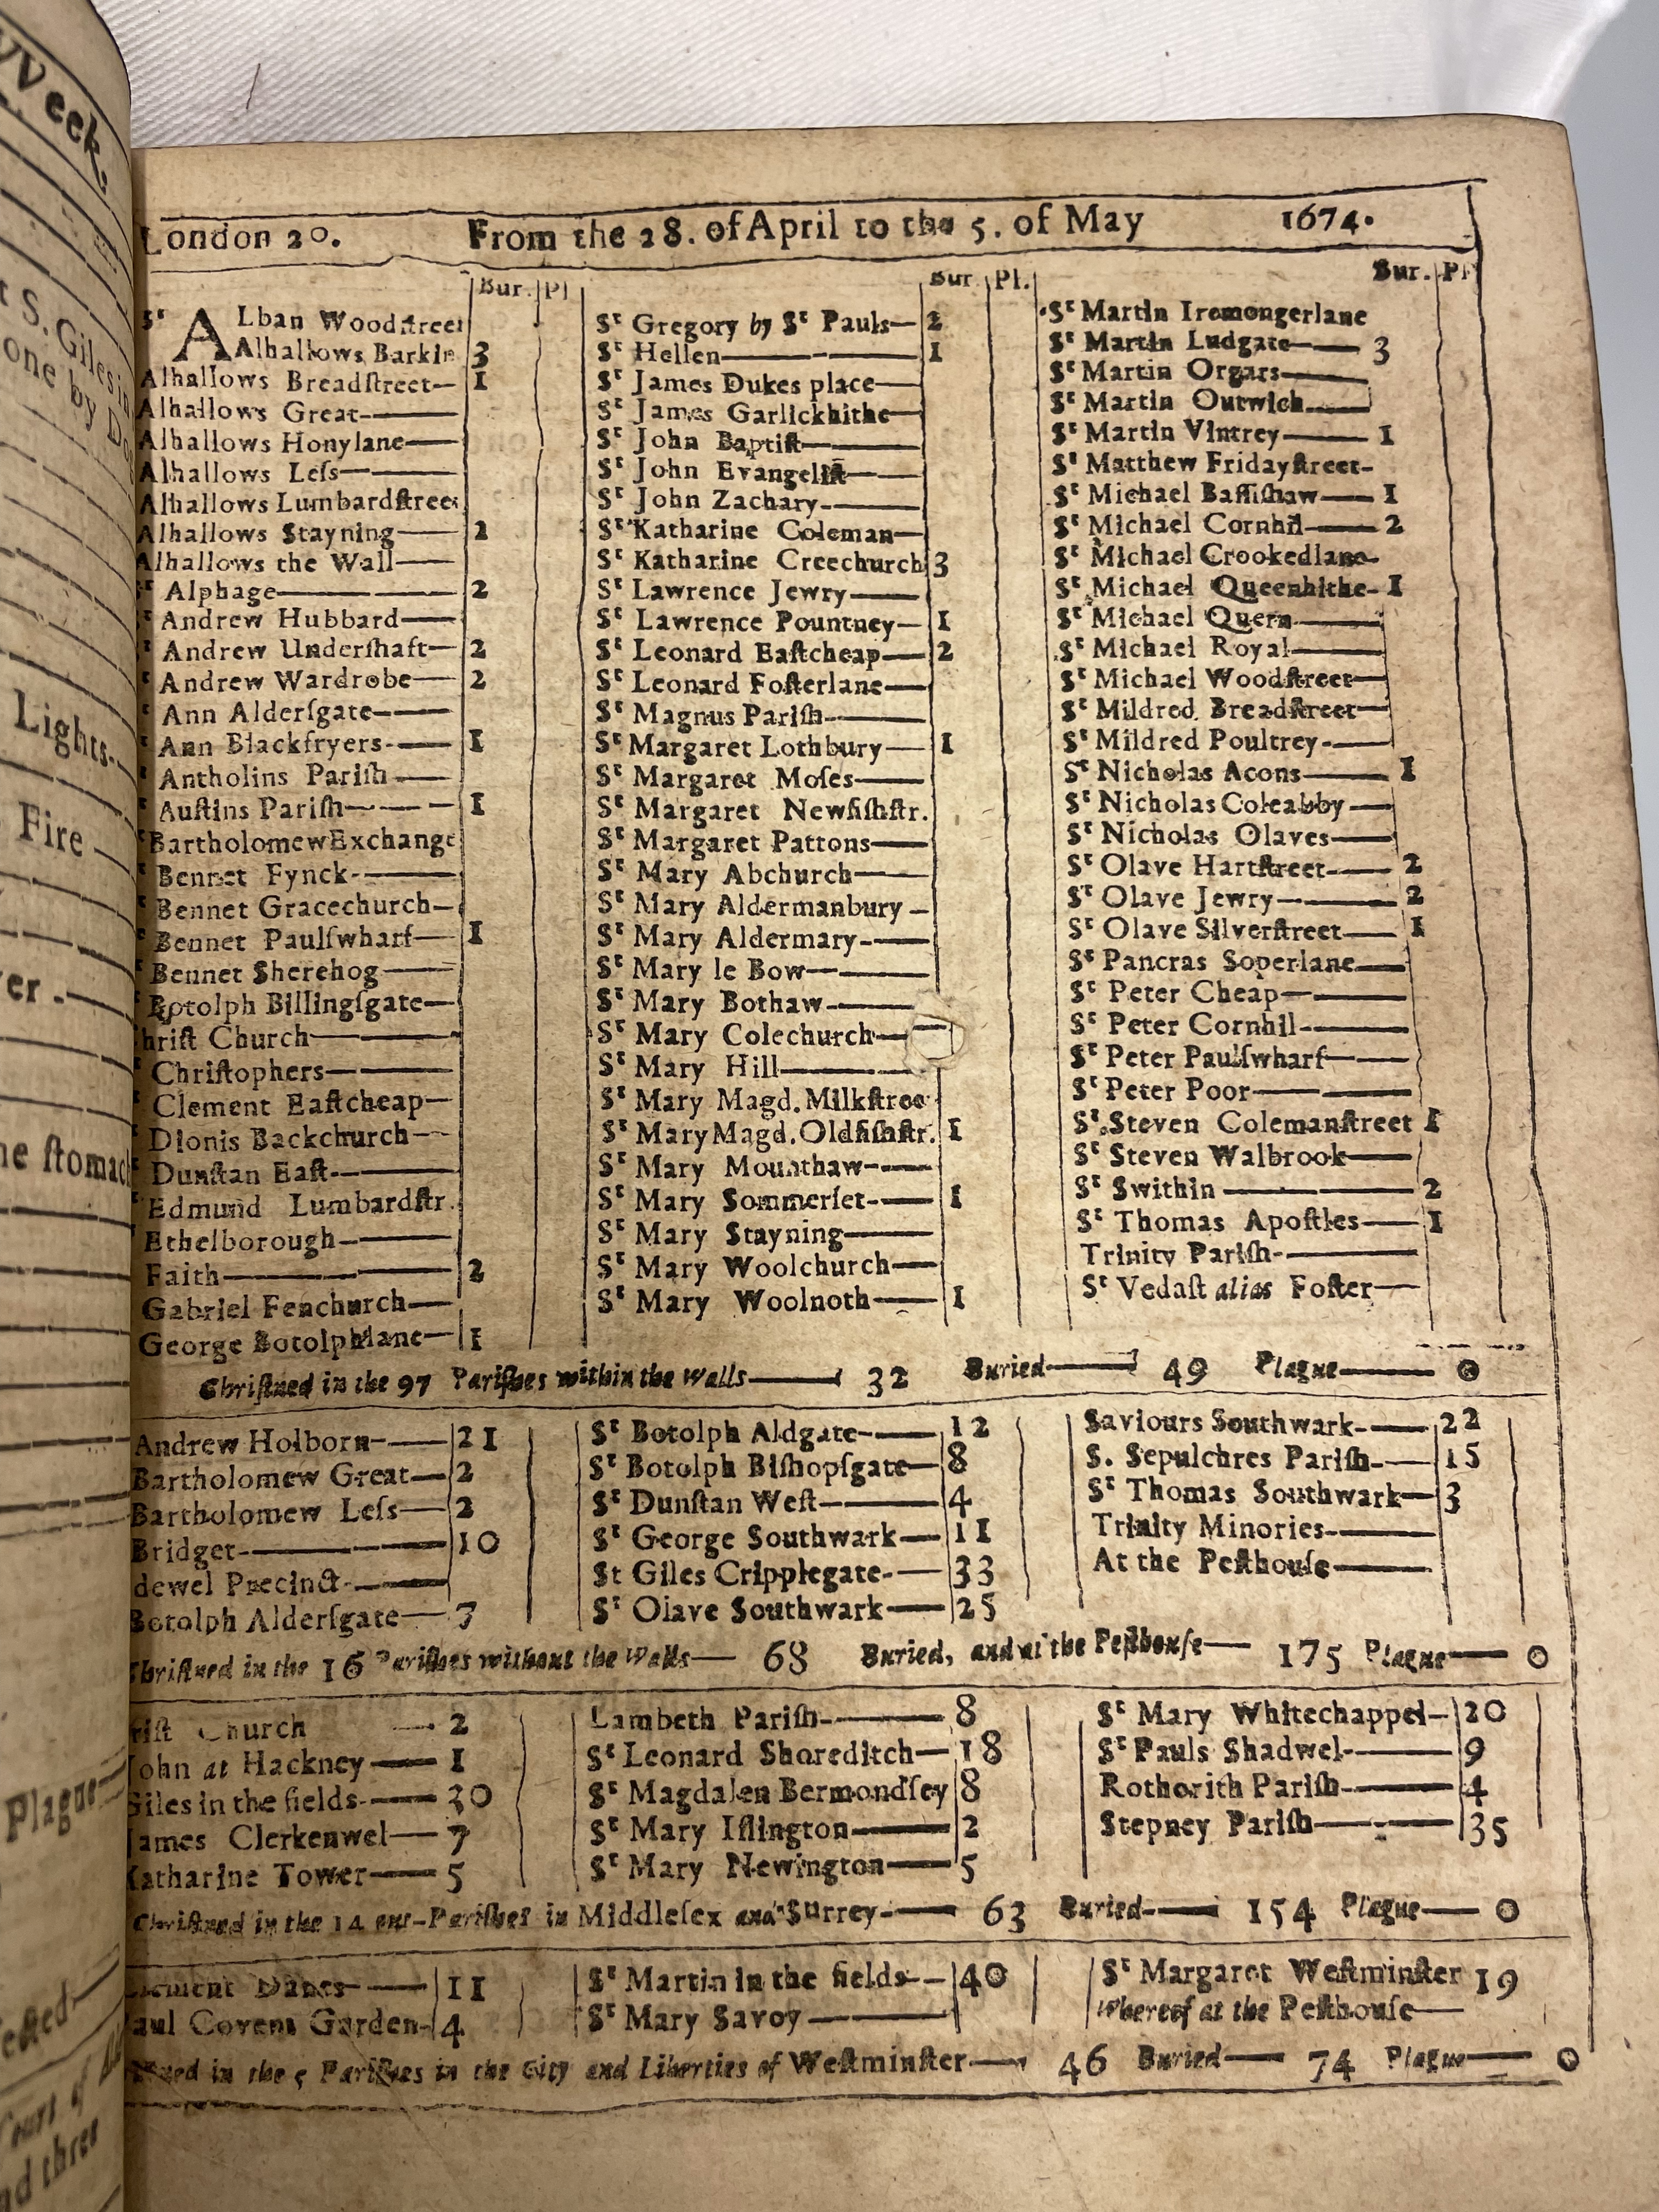 Week.
t S. Giles in
one by
Lights-
Fire
er -
he stomach
Plague
ected
Court of
nd three
London 20. From the 28. of April to the 5. of May 1674.
Bur. Pl
Sᵗ ALban Woodſtreet
Alhallows Barkin 3
Alhallows Breadſtreet 1
Alhallows Great
Alhallows Honylane
Alhallows Leſs
Alhallows Lumbardſtreet
Alhallows Stayning 2
Alhallows the Wall
Sᵗ Alphage 2
ᵗ Andrew Hubbard
ᵗ Andrew Underſhaft 2
ᵗ Andrew Wardrobe 2
ᵗ Ann Alderſgate
ᵗ Ann Blackfryers 1
ᵗ Antholins Pariſh
ᵗ Auſtins Pariſh 1
ᵗ Bartholomew Exchange
ᵗ Bennet Fynck
ᵗ Bennet Gracechurch
ᵗ Bennet Paulſwharf 1
ᵗ Bennet Sherehog
ᵗ Botolph Billingſgate
hriſt Church
ᵗ Chriſtophers
ᵗ Clement Eaſtcheap
ᵗ Dionis Backchurch
ᵗ Dunſtan Eaſt
ᵗ Edmund Lumbardſtr.
Ethelborough
Faith 2
Gabriel Fenchurch
George Botolphlane 1
Bur. Pl.
Sᵗ Gregory by Sᵗ Pauls 2
Sᵗ Hellen 1
Sᵗ James Dukes place
Sᵗ James Garlickhithe
Sᵗ John Baptiſt
Sᵗ John Evangeliſt
Sᵗ John Zachary
Sᵗ Katharine Coleman
Sᵗ Katharine Creechurch 3
Sᵗ Lawrence Jewry
Sᵗ Lawrence Pountney 1
Sᵗ Leonard Eaſtcheap 2
Sᵗ Leonard Foſterlane
Sᵗ Magnus Pariſh
Sᵗ Margaret Lothbury 1
Sᵗ Margaret Moſes
Sᵗ Margaret Newfiſhſtr.
Sᵗ Margaret Pattons
Sᵗ Mary Abchurch
Sᵗ Mary Aldermanbury
Sᵗ Mary Aldermary
Sᵗ Mary le Bow
Sᵗ Mary Bothaw
Sᵗ Mary Colechurch
Sᵗ Mary Hill
Sᵗ Mary Magd. Milkſtree
Sᵗ Mary Magd. Oldfiſhſtr. 1
Sᵗ Mary Mounthaw
Sᵗ Mary Sommerſet 1
Sᵗ Mary Stayning
Sᵗ Mary Woolchurch
Sᵗ Mary Woolnoth 1
Bur. Pl
Sᵗ Martin Iremongerlane
Sᵗ Martin Ludgate 3
Sᵗ Martin Orgars
Sᵗ Martin Outwich
Sᵗ Martin Vintrey 1
Sᵗ Matthew Fridayſtreet
Sᵗ Michael Baſſiſhaw 1
Sᵗ Michael Cornhil 2
Sᵗ Michael Crookedlane
Sᵗ Michael Queenhithe 1
Sᵗ Michael Quern
Sᵗ Michael Royal
Sᵗ Michael Woodſtreet
Sᵗ Mildred Breadſtreet
Sᵗ Mildred Poultrey
Sᵗ Nicholas Acons 1
Sᵗ Nicholas Coleabby
Sᵗ Nicholas Olaves
Sᵗ Olave Hartſtreet 2
Sᵗ Olave Jewry 2
Sᵗ Olave Silverſtreet 1
Sᵗ Pancras Soperlane
Sᵗ Peter Cheap
Sᵗ Peter Cornhil
Sᵗ Peter Paulſwharf
Sᵗ Peter Poor
Sᵗ Steven Colemanſtreet 1
Sᵗ Steven Walbrook
Sᵗ Swithin 2
Sᵗ Thomas Apoſtles 1
Trinity Pariſh
Sᵗ Vedaſt alias Foſter
Chriſtned in the 97 Pariſhes within the Walls 32 Buried 49 Plague 0
Andrew Holborn 21
Bartholomew Great 2
Bartholomew Leſs 2
Bridget 10
dewel Precinct
Botolph Alderſgate 7
Sᵗ Botolph Aldgate 12
Sᵗ Botolph Biſhopſgate 8
Sᵗ Dunſtan Weſt 4
Sᵗ George Southwark 11
St Giles Cripplegate 33
Sᵗ Olave Southwark 25
Saviours Southwark 22
S. Sepulchres Pariſh 15
Sᵗ Thomas Southwark 3
Trinity Minories
At the Peſthouſe
Chriſtned in the 16 Pariſhes without the Walls 68 Buried, and at the Peſthouſe 175 Plague 0
riſt Church 2
John at Hackney 1
Giles in the fields 30
James Clerkenwel 7
Katharine Tower 5
Lambeth Pariſh 8
Sᵗ Leonard Shoreditch 18
Sᵗ Magdalen Bermondſey 8
Sᵗ Mary Iſlington 2
Sᵗ Mary Newington 5
Sᵗ Mary Whitechappel 20
Sᵗ Pauls Shadwel 9
Rothorith Pariſh 4
Stepney Pariſh 35
Chriſtned in the 14 out-Pariſhes in Middleſex and Surrey 63 Buried 154 Plague 0
Clement Danes 11
aul Covent Garden 4
Sᵗ Martin in the fields 40
Sᵗ Mary Savoy
Sᵗ Margaret Weſtminſter 19
Whereof at the Peſthouſe
ned in the 5 Pariſhes in the City and Liberties of Weſtminſter 46 Buried 74 Plague 0